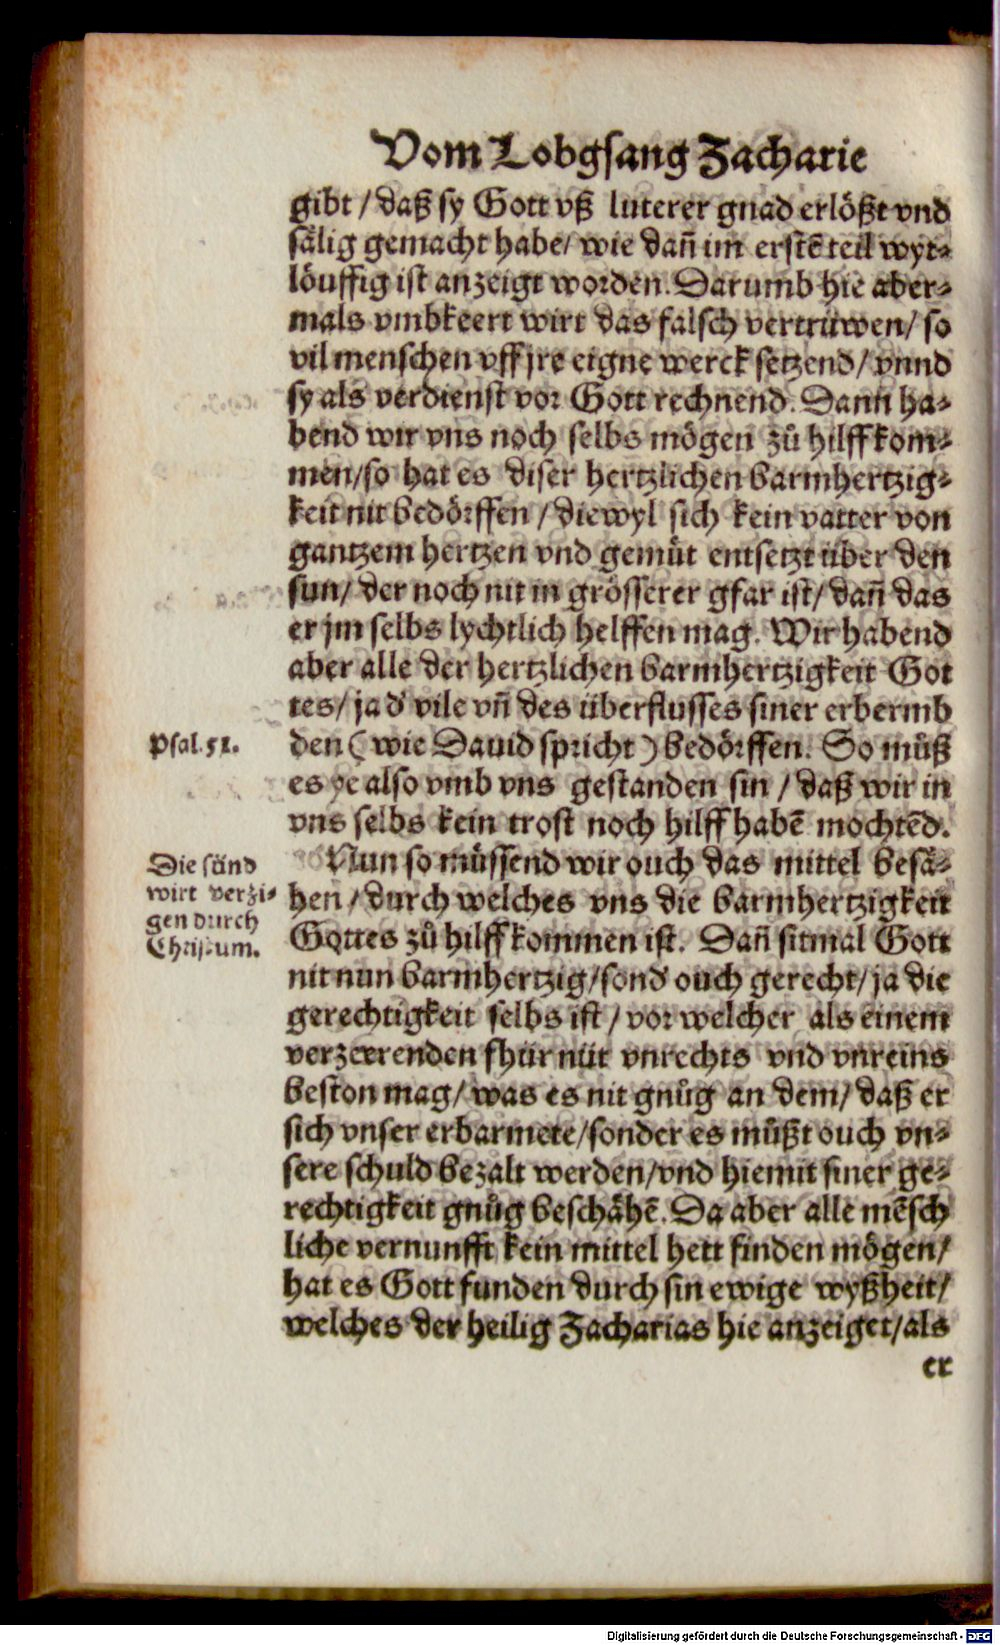 Vom Lobgsang Zacharie
gibt / daß sy Gott vß luterer gnad erlößt vnd
sälig gemacht habe / wie dañ im erstē teil wyt-
löuffig ist anzeigt worden. Darumb hie aber-
mals vmbkeert wirt das falsch vertrüwen / so
vil menschen vff jre eigne werck setzend / vnnd
sy als verdienst vor Gott rechnend. Dann ha-
bend wir vns noch selbs mögen zů hilff kom-
men / so hat es diser hertzlichen barmhertzig-
keit nit bedörffen / diewyl sich kein vatter von
gantzem hertzen vnd gemüt entsetzt über den
sun / der noch nit in grösserer gfar ist / dañ das
er jm selbs lychtlich helffen mag. Wir habend
aber alle der hertzlichen barmhertzigkeit Got
tes / ja d' vile vñ des überflusses siner erbermb
Psal. 51.
den ( wie Dauid spricht ) bedörffen. So müß
es ye also vmb vns gestanden sin / daß wir in
vns selbs kein trost noch hilff habē mochtēd.
Die sünd
wirt verzi-
gen durch
Christum.
Nun so müssend wir ouch das mittel besä-
hen / durch welches vns die barmhertzigkeit
Gottes zů hilff kommen ist. Dañ sitmal Gott
nit nun barmhertzig / sond' ouch gerecht / ja die
gerechtigkeit selbs ist / vor welcher als einem
verzeerenden fhür nüt vnrechts vnd vnreins
beston mag / was es nit gnůg an dem / daß er
sich vnser erbarmete / sonder es müßt ouch vn-
sere schuld bezalt werden / vnd hiemit siner ge-
rechtigkeit gnůg beschähē. Da aber alle mēsch
liche vernunfft kein mittel hett finden mögen /
hat es Gott funden durch sin ewige wyßheit /
welches der heilig Zacharias hie anzeiget / als
er
Digitalisierung gefördert durch die Deutsche Forschungsgemeinschaft - DFG